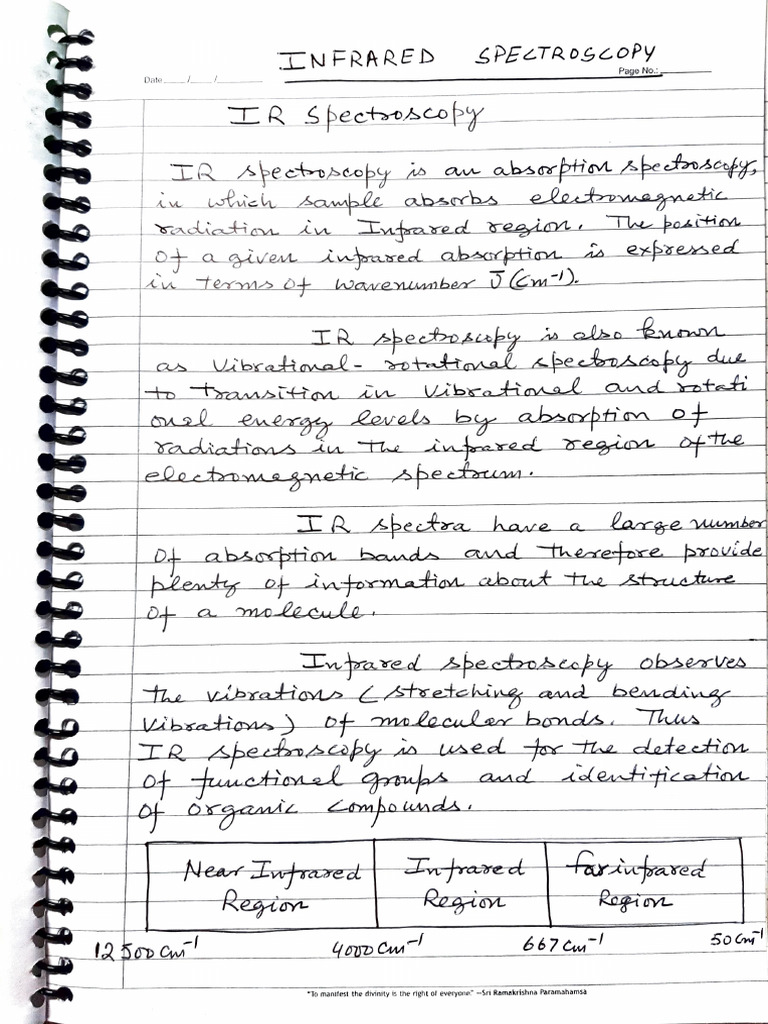 INFRARED SPECTROSCOPY
Date / / Page No.:
IR Spectroscopy
IR spectroscopy is an absorption spectroscopy,
in which sample absorbs electromagnetic
radiation in Infrared region. The position
of a given infrared absorption is expressed
in terms of wavenumber ῡ (cm⁻¹).
IR spectroscopy is also known
as Vibrational-rotational spectroscopy due
to transition in Vibrational and rotati
onal energy levels by absorption of
radiations in the infrared region of the
electromagnetic spectrum.
IR spectra have a large number
of absorption bands and therefore provide
plenty of information about the structure
of a molecule.
Infrared spectroscopy observes
the vibrations (stretching and bending
vibrations) of molecular bonds. Thus
IR spectroscopy is used for the detection
of functional groups and identification
of organic compounds.
Near Infrared Infrared far infrared
Region Region Region
12500 cm⁻¹ 4000 cm⁻¹ 667 cm⁻¹ 50 cm⁻¹
"To manifest the divinity is the right of everyone." —Sri Ramakrishna Paramahamsa